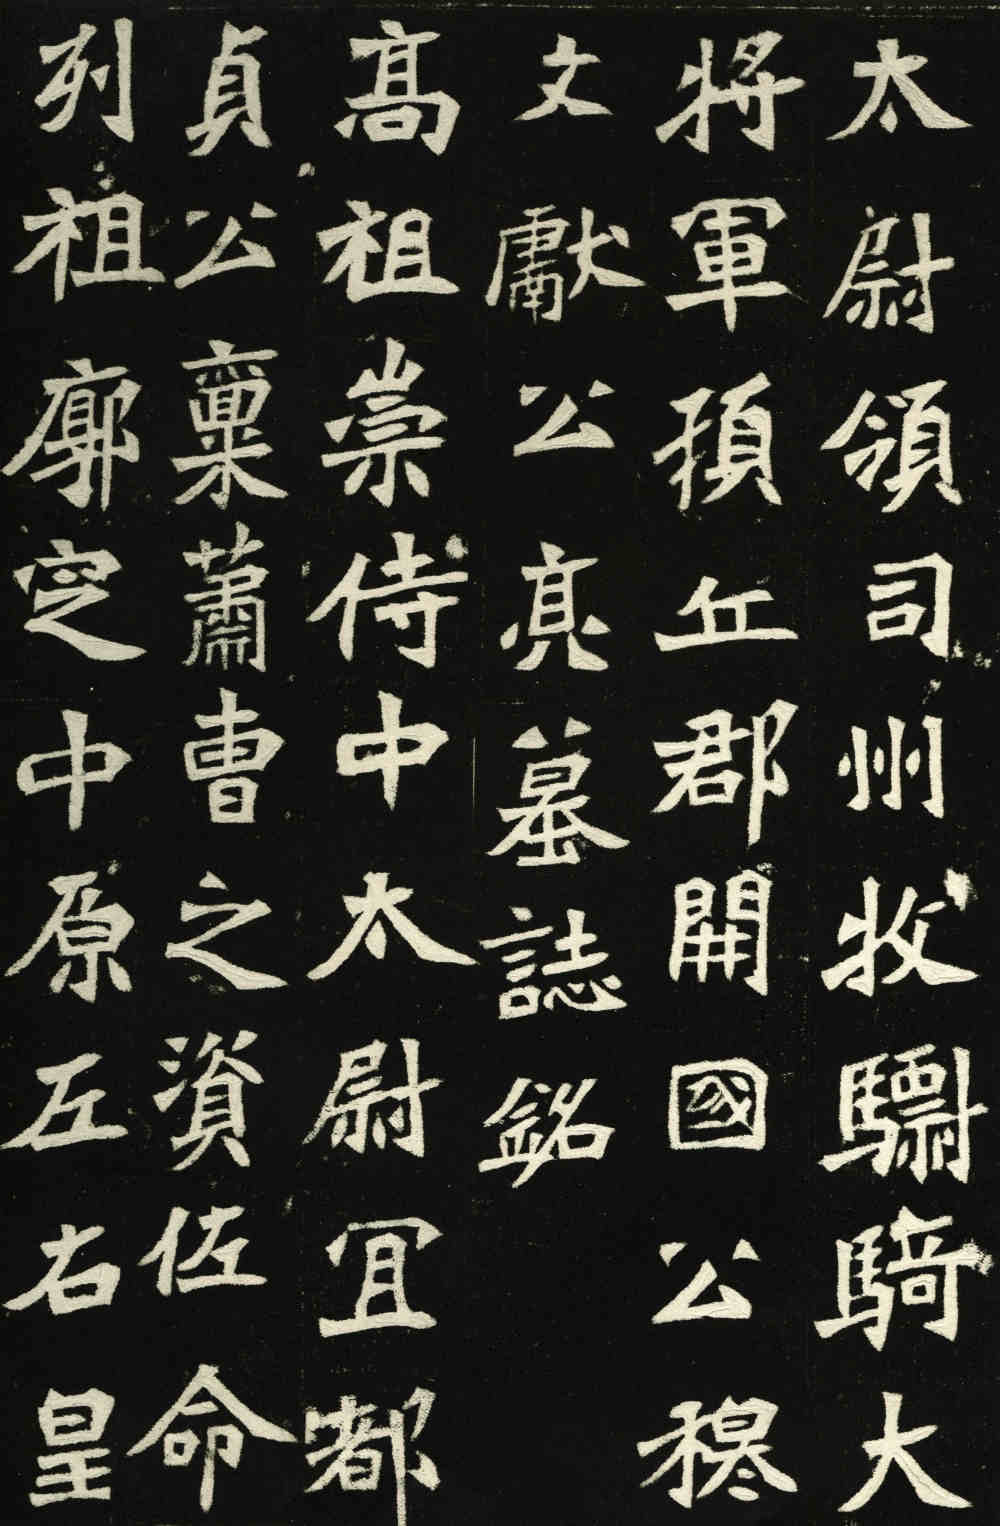 太尉領司州牧驃騎大
將軍頓丘郡開國公穆
文獻公亮墓誌銘
高祖崇侍中太尉宜都
貞公稟蕭曹之資佐命
列祖廓定中原左右皇